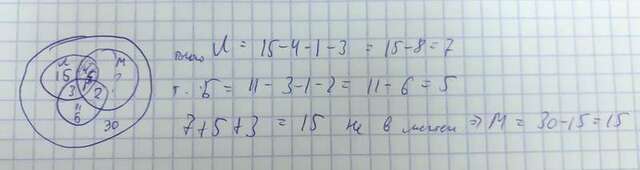 Л М
15 5 ?
3 2
11
Б
30
только Л = 15-4-1-3 = 15-8=7
т. Б = 11-3-1-2= 11-6=5
7+5+3 = 15 не в мечтем ⇒ М = 30-15=15